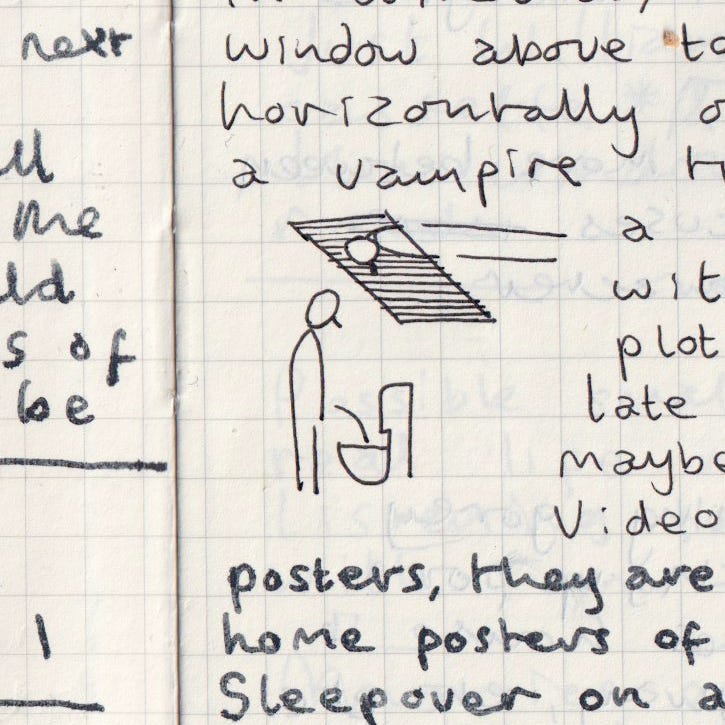 next
ll
me
ld
s of
be
1
window above to
horizontally o
a vampire
a
wit
plot
late
maybe
Video
posters, they are
home posters of
Sleepover on a